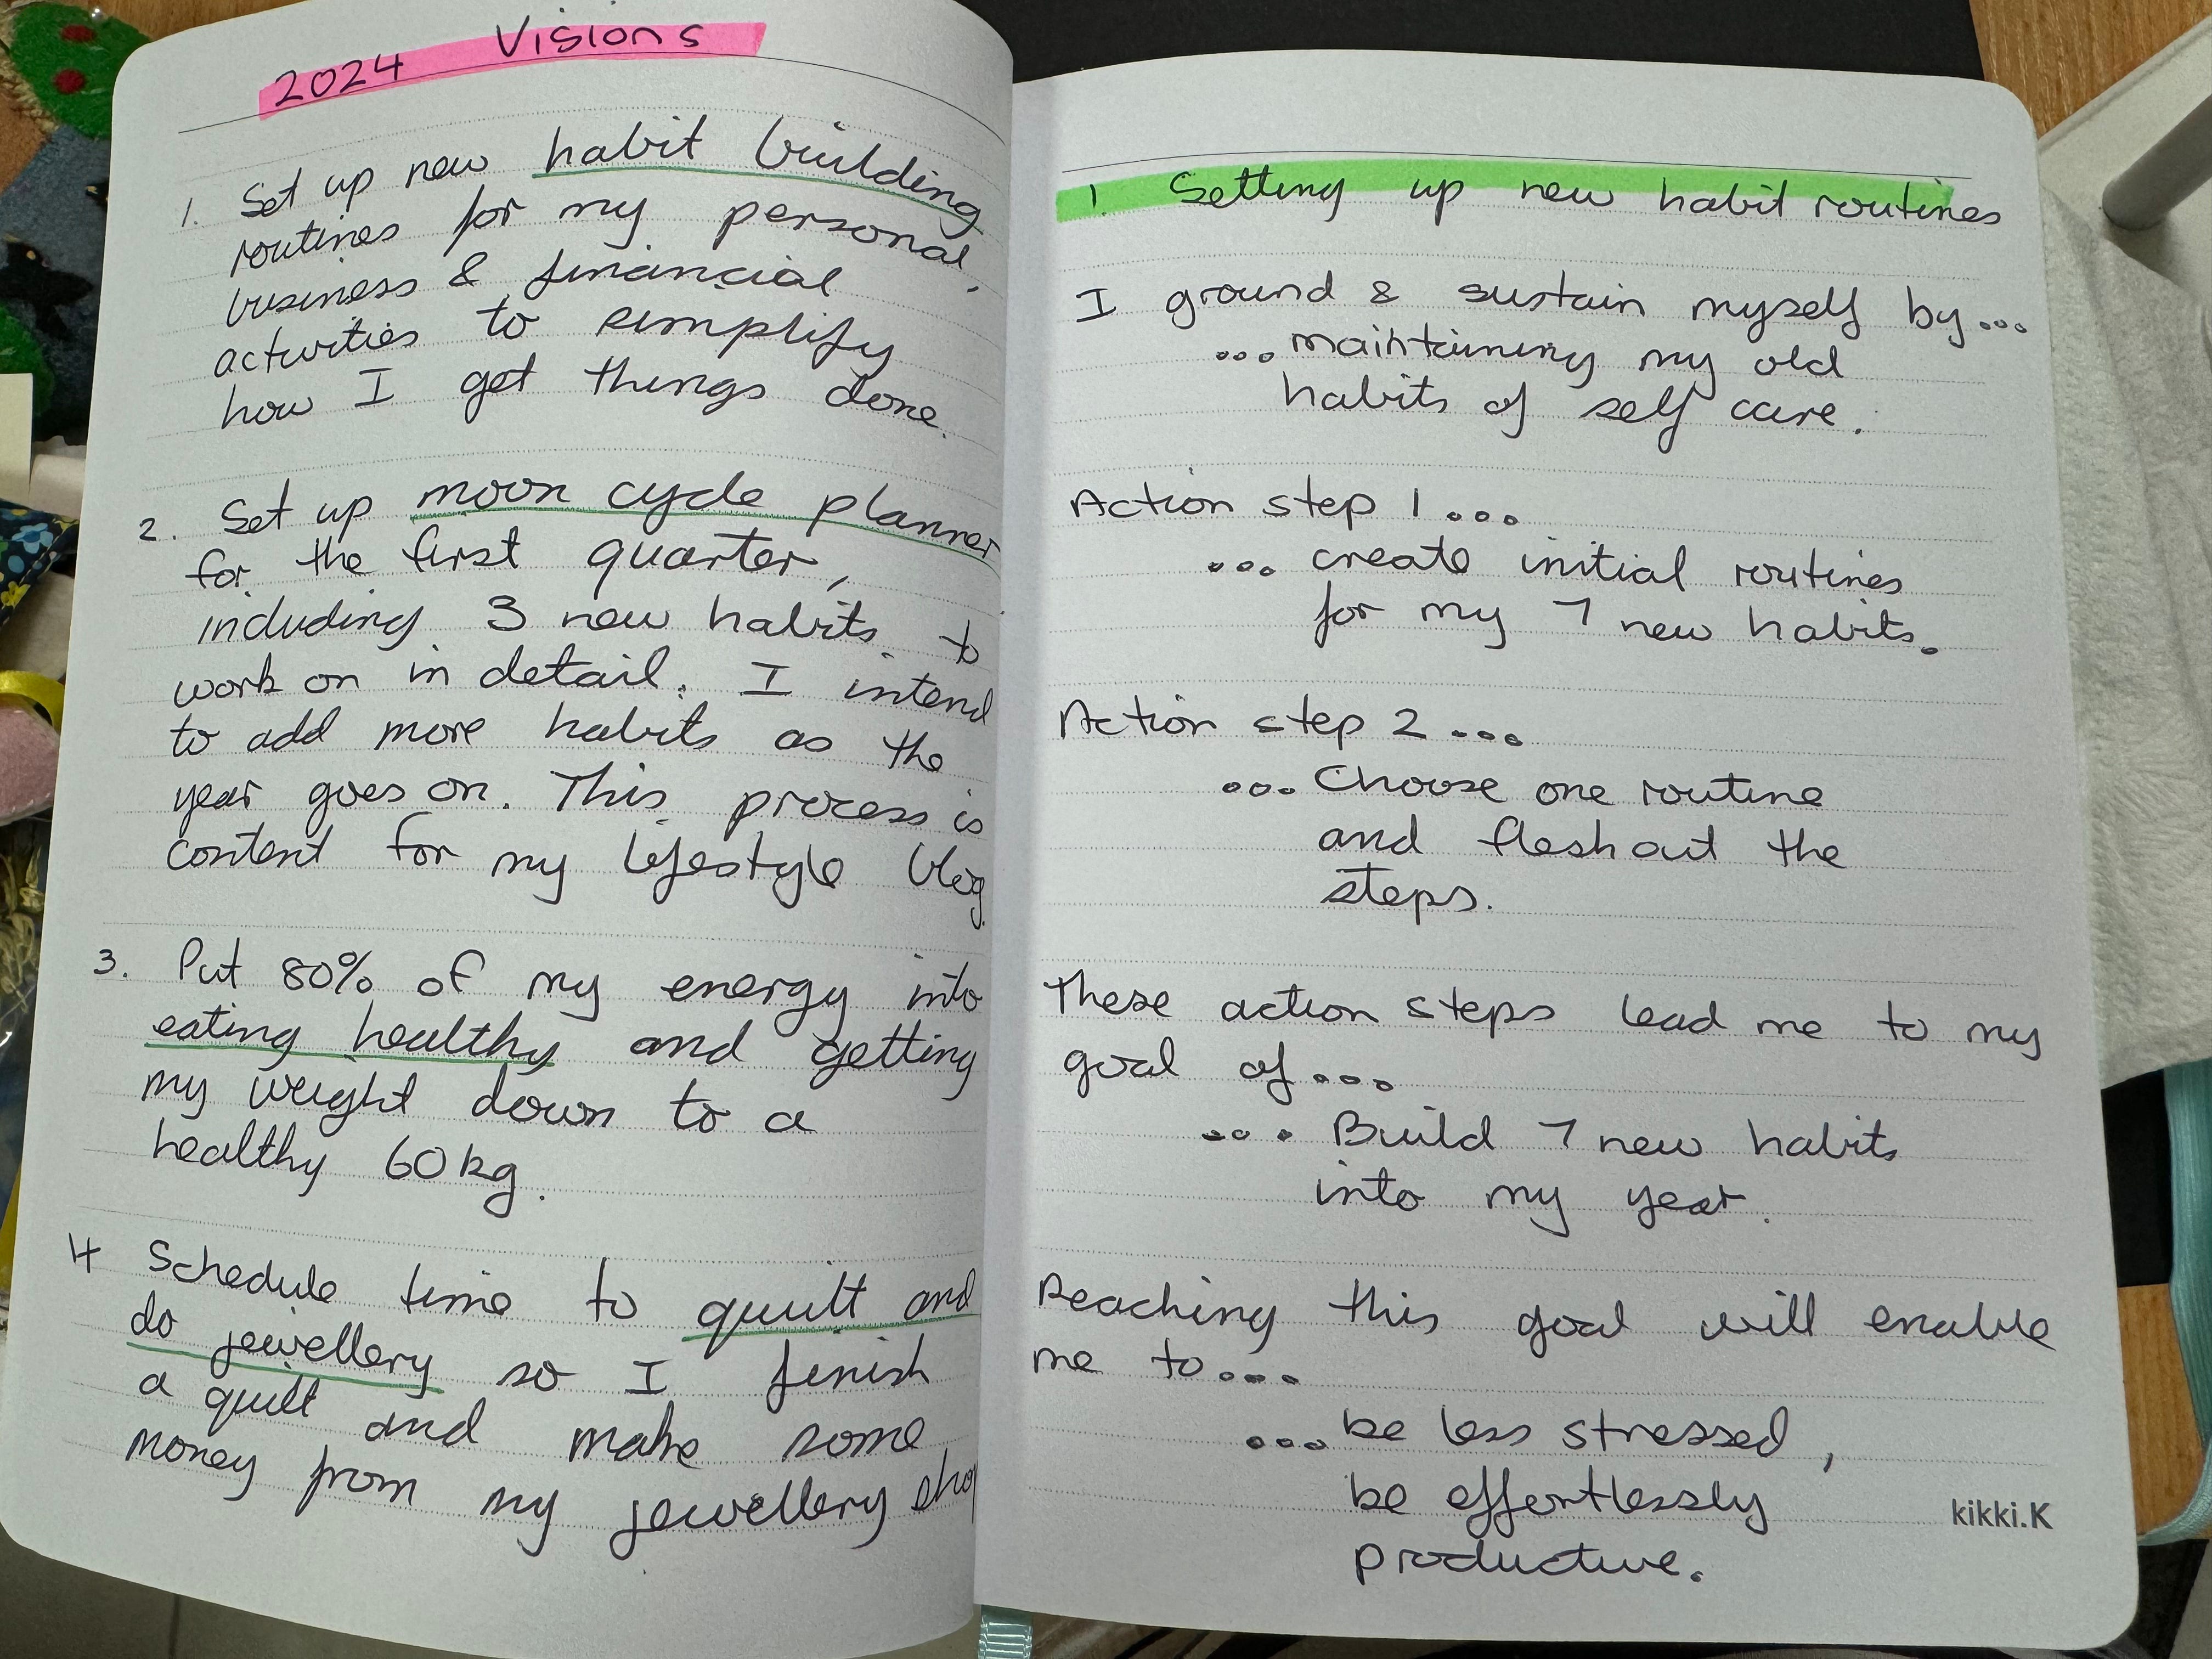 2024 Visions
1. Set up new habit building
routines for my personal,
business & financial
activities to simplify
how I get things done.
2. Set up moon cycle planner
for the first quarter,
including 3 new habits to
work on in detail. I intend
to add more habits as the
year goes on. This process is
content for my lifestyle blog.
3. Put 80% of my energy into
eating healthy and getting
my weight down to a
healthy 60kg.
4 Schedule time to quilt and
do jewellery so I finish
a quilt and make some
money from my jewellery
1. Setting up new habit routines
I ground & sustain myself by...
... maintaining my old
habits of self care.
Action step 1...
... create initial routines
for my 7 new habits.
Action step 2...
... Choose one routine
and flesh out the
steps.
These action steps lead me to my
goal of...
... Build 7 new habits
into my year.
Reaching this goal will enable
me to...
... be less stressed,
be effortlessly
productive.
kikki.K